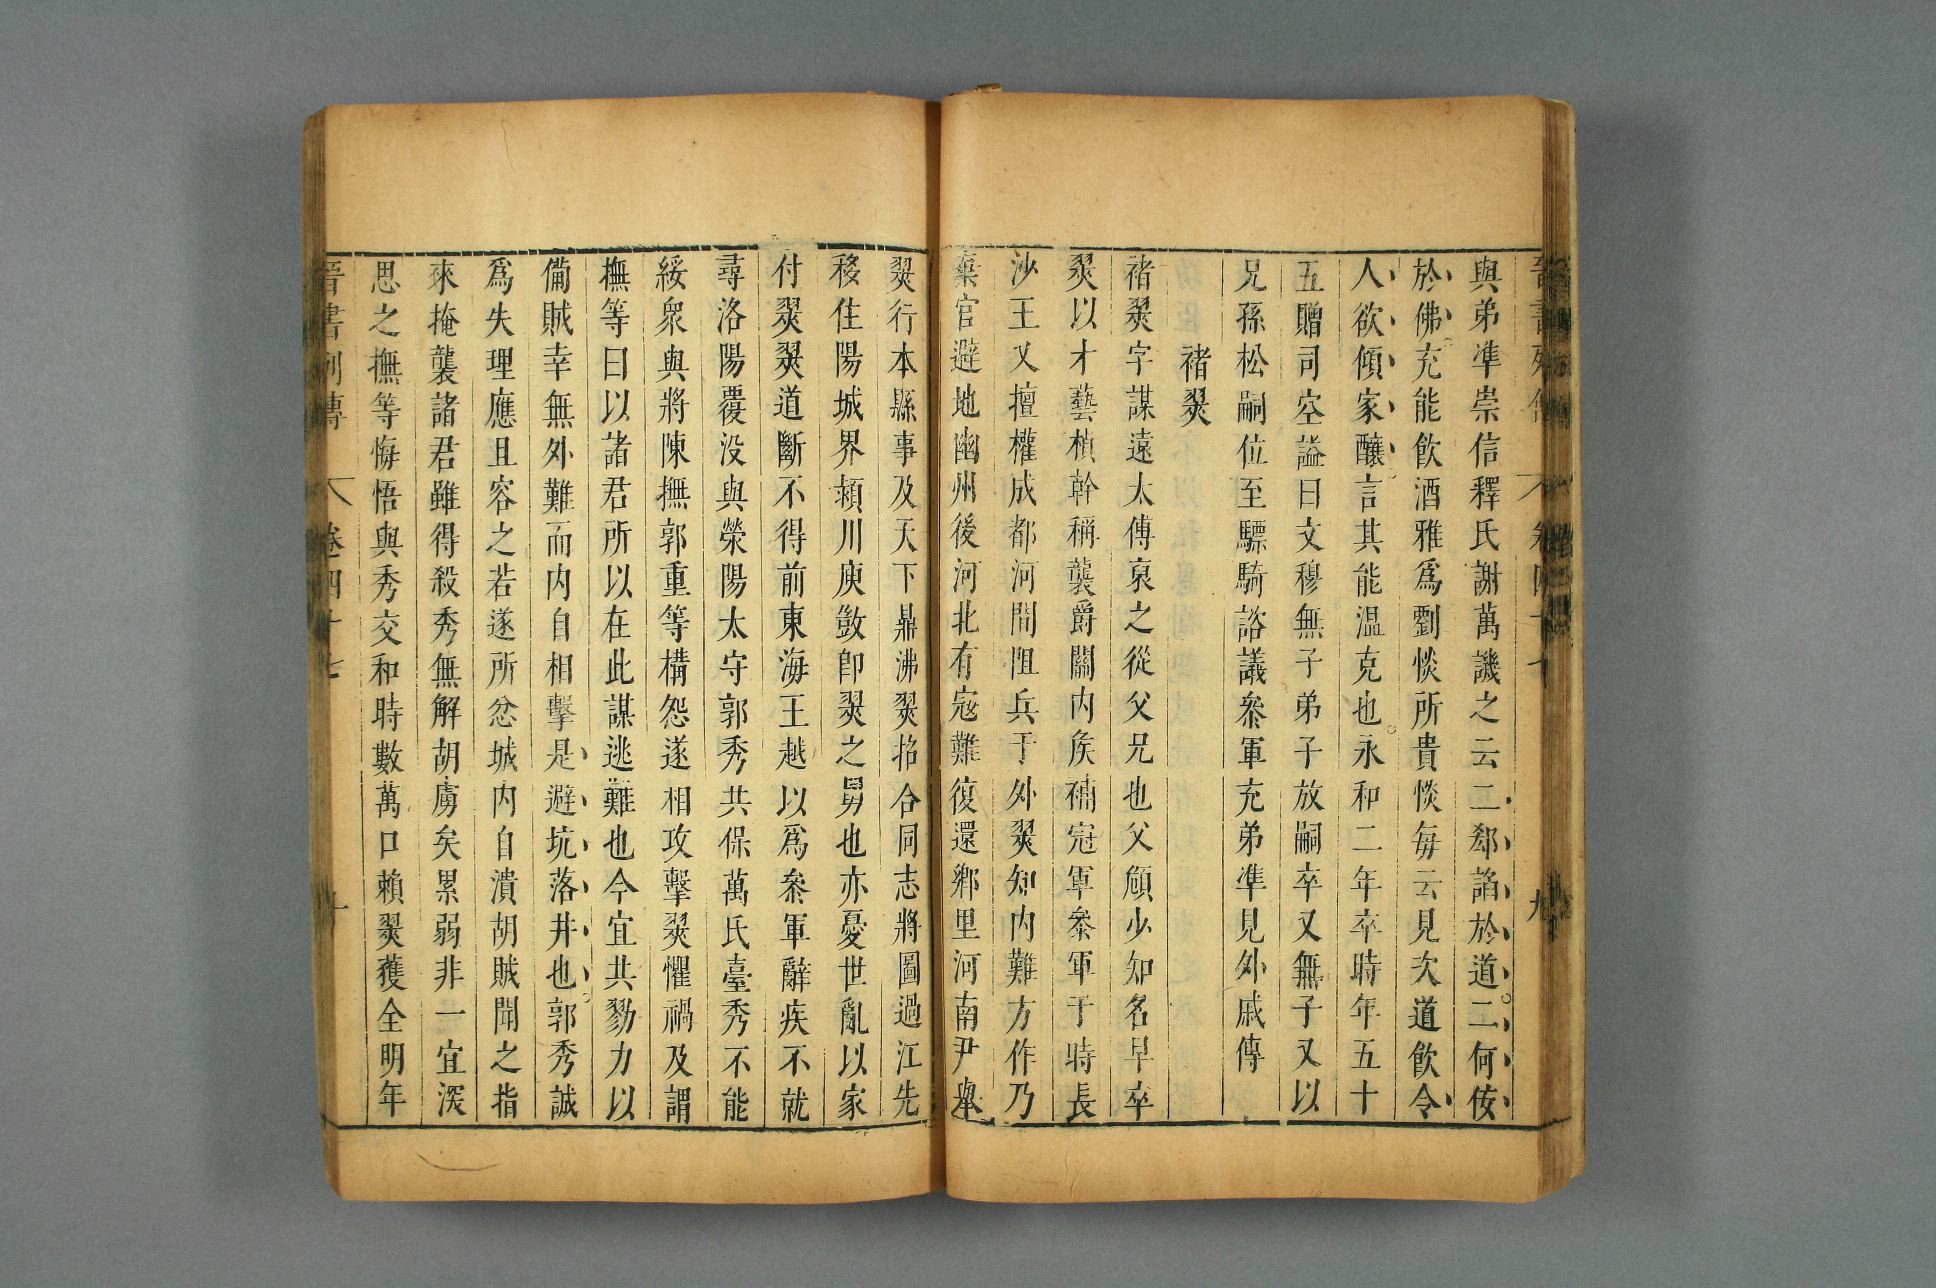 晉書列傳 卷四十七 九
與弟凖崇信釋氏謝萬譏之云二郄諂於道二何佞
於佛充能飲酒雅爲劉惔所貴惔每云見次道飲令
人欲傾家釀言其能温克也永和二年卒時年五十
五贈司空諡曰文穆無子弟子放嗣卒又無子又以
兄孫松嗣位至驃騎諮議叅軍充弟凖見外戚傳
褚翜
褚翜字謀遠太傅裒之從父兄也父頠少知名早卒
翜以才藝楨幹稱襲爵關內矦補冠軍叅軍于時長
沙王乂擅權成都河間阻兵于外翜知內難方作乃
棄官避地幽州後河北有寇難復還鄉里河南尹舉
翜行本縣事及天下鼎沸翜招合同志將圖過江先
移住陽城界潁川庾敳卽翜之舅也亦憂世亂以家
付翜翜道斷不得前東海王越以爲叅軍辭疾不就
尋洛陽覆没與滎陽太守郭秀共保萬氏臺秀不能
綏衆與將陳撫郭重等構怨遂相攻擊翜懼禍及謂
撫等曰以諸君所以在此謀逃難也今宜共勠力以
備賊幸無外難而內自相擊是避坑落井也郭秀誠
爲失理應且容之若遂所忿城內自潰胡賊聞之指
來掩襲諸君雖得殺秀無解胡虜矣累弱非一宜深
思之撫等悔悟與秀交和時數萬口賴翜獲全明年
晉書列傳 卷四十七 十